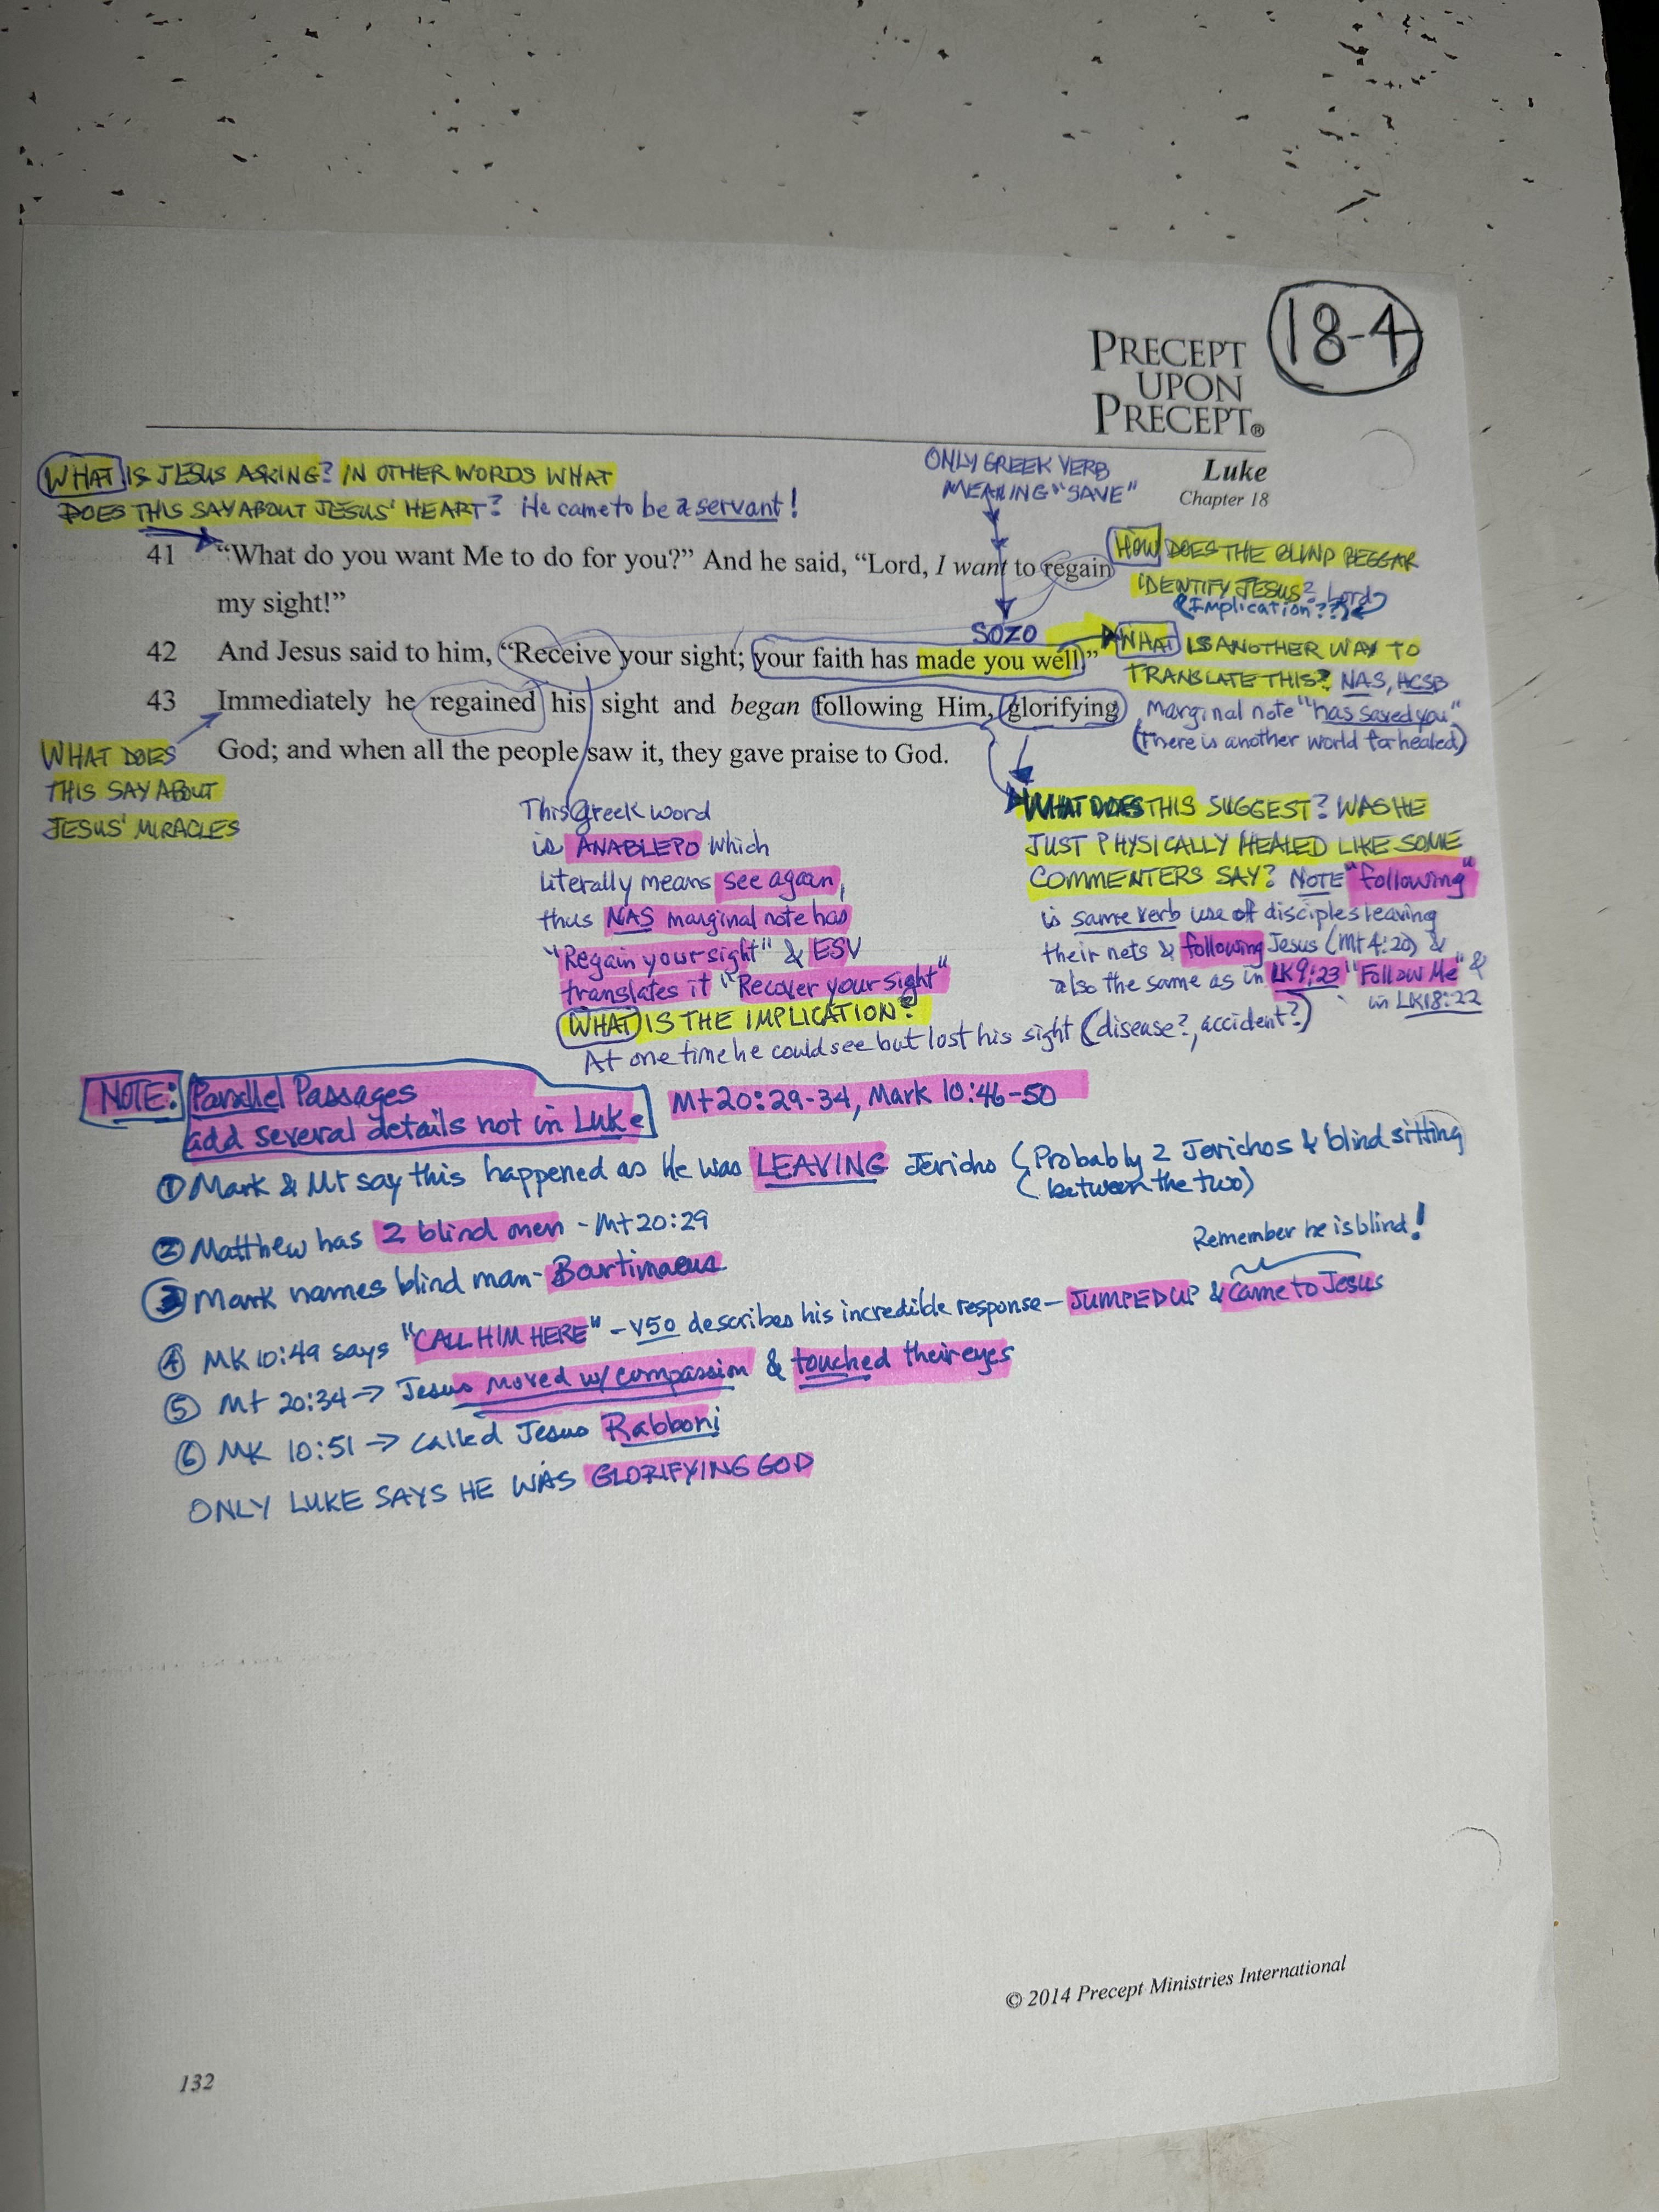 18-4
PRECEPT
UPON
PRECEPT®
Luke
Chapter 18
WHAT IS JESUS ASKING? IN OTHER WORDS WHAT
DOES THIS SAY ABOUT JESUS' HEART? He came to be a servant!
ONLY GREEK VERB
MEANING "SAVE"
41 "What do you want Me to do for you?" And he said, "Lord, I want to regain
my sight!"
HOW DOES THE BLIND BEGGAR
IDENTIFY JESUS? Lord
(Implication??)
SOZO
42 And Jesus said to him, "Receive your sight; your faith has made you well."
WHAT IS ANOTHER WAY TO
TRANSLATE THIS? NAS, HCSB
Marginal note "has saved you"
(There is another world for healed)
43 Immediately he regained his sight and began following Him, glorifying
God; and when all the people saw it, they gave praise to God.
WHAT DOES
THIS SAY ABOUT
JESUS' MIRACLES
This Greek word
is ANABLEPO which
literally means see again,
thus NAS marginal note has
"Regain your sight" & ESV
translates it "Recover your sight"
WHAT IS THE IMPLICATION?
At one time he could see but lost his sight (disease?, accident?)
WHAT DOES THIS SUGGEST? WAS HE
JUST PHYSICALLY HEALED LIKE SOME
COMMENTERS SAY? NOTE "following"
is same verb use of disciples leaving
their nets & following Jesus (Mt 4:20) &
also the same as in LK 9:23 "Follow Me" &
in LK 18:22
NOTE: Parallel Passages
add several details not in Luke
Mt 20:29-34, Mark 10:46-50
① Mark & Mt say this happened as He was LEAVING Jericho (Probably 2 Jerichos & blind sitting
between the two)
② Matthew has 2 blind men - Mt 20:29
③ Mark names blind man - Bartimaeus
Remember he is blind!
④ MK 10:49 says "CALL HIM HERE" - V50 describes his incredible response - JUMPED UP & Came to Jesus
⑤ Mt 20:34 → Jesus moved w/ compassion & touched their eyes
⑥ MK 10:51 → called Jesus Rabboni
ONLY LUKE SAYS HE WAS GLORIFYING GOD
© 2014 Precept Ministries International
132